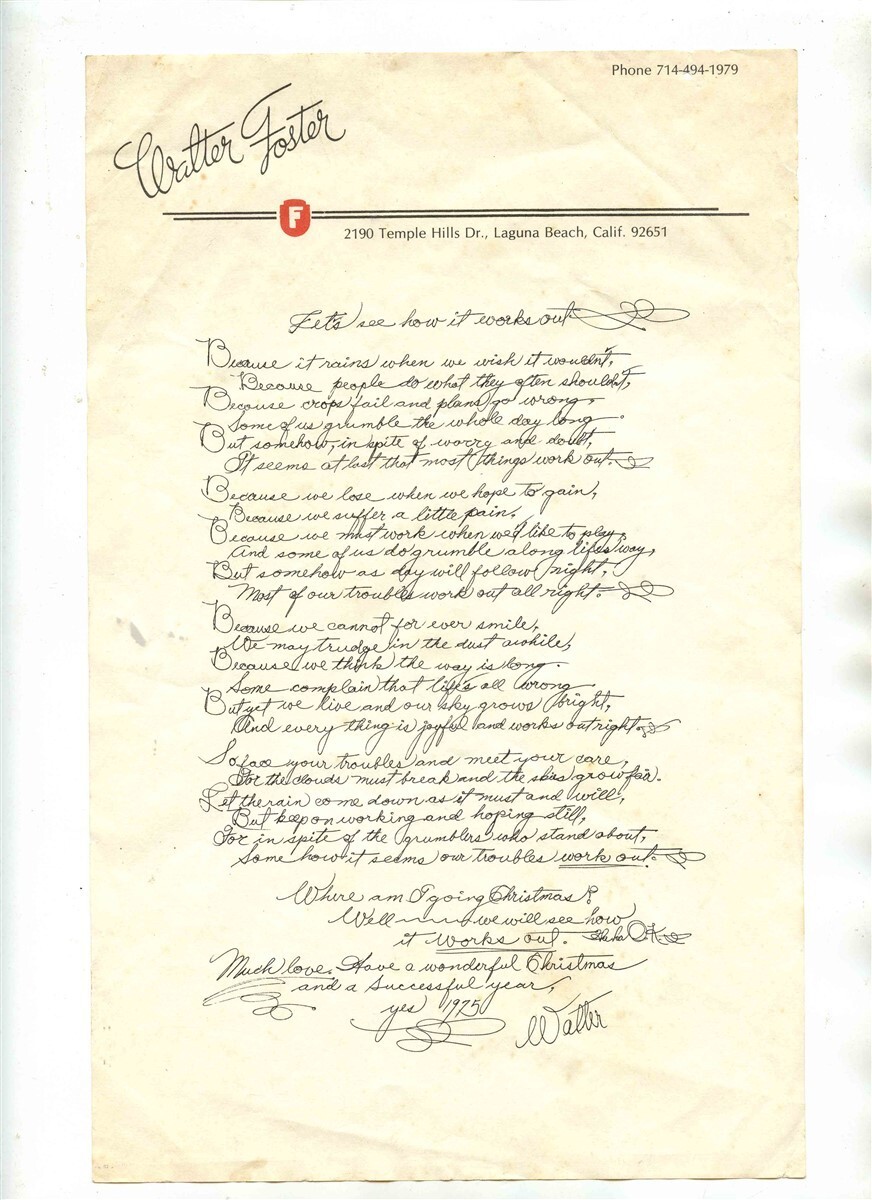 Phone 714-494-1979
Walter Foster
F
2190 Temple Hills Dr., Laguna Beach, Calif. 92651
Let's see how it works out
Because it rains when we wish it wouldn't,
Because people do what they often shouldn't,
Because crops fail and plans go wrong,
Some of us grumble the whole day long.
But somehow, in spite of worry and doubt,
It seems at last that most things work out.
Because we lose when we hope to gain,
Because we suffer a little pain,
Because we must work when we'd like to play,
And some of us do grumble along life's way,
But somehow as day will follow night,
Most of our troubles work out all right.
Because we cannot for ever smile,
We may trudge in the dust awhile,
Because we think the way is long.
Some complain that life's all wrong
But yet we live and our sky grows bright,
And every thing is joyful and works out right.
So face your troubles and meet your care,
For the clouds must break and the skies grow fair.
Let the rain come down as it must and will,
But keep on working and hoping still,
For in spite of the grumblers who stand about,
Some how it seems our troubles work out.
Where am I going Christmas?
Well we will see how
it works out. Ha ha O.K.
Much love. Have a wonderful Christmas
and a Successful year,
yes 1975
Walter